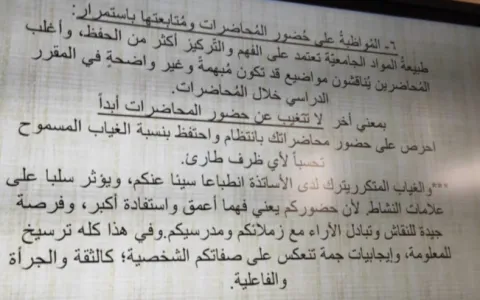 ٦- المُواظبةُ على حُضور المُحاضرات ومُتابعتها باستمرار:
طبيعةُ المواد الجامعيّة تعتمد على الفهم والتّركيز أكثر من الحفظ، وأغلب
المُحاضرين يُناقشون مواضيع قد تكون مُبهمةً وغير واضحةٍ في المقرر
الدراسي خلال المُحاضرات.
بمعني أخر لا تتغيب عن حضور المحاضرات أبداً
احرص على حضور محاضراتك بانتظام واحتفظ بنسبة الغياب المسموح
تحسباً لأي ظرف طارئ.
***والغياب المتكرريترك لدى الأساتذة انطباعا سيئا عنكم، ويؤثر سلبا على
علامات النشاط لأن حضوركم يعني فهما أعمق واستفادة أكبر، وفرصة
جيدة للنقاش وتبادل الأراء مع زملائكم ومدرسيكم.وفي هذا كله ترسيخ
للمعلومة، وإيجابيات جمة تنعكس على صفاتكم الشخصية؛ كالثقة والجرأة
والفاعلية.